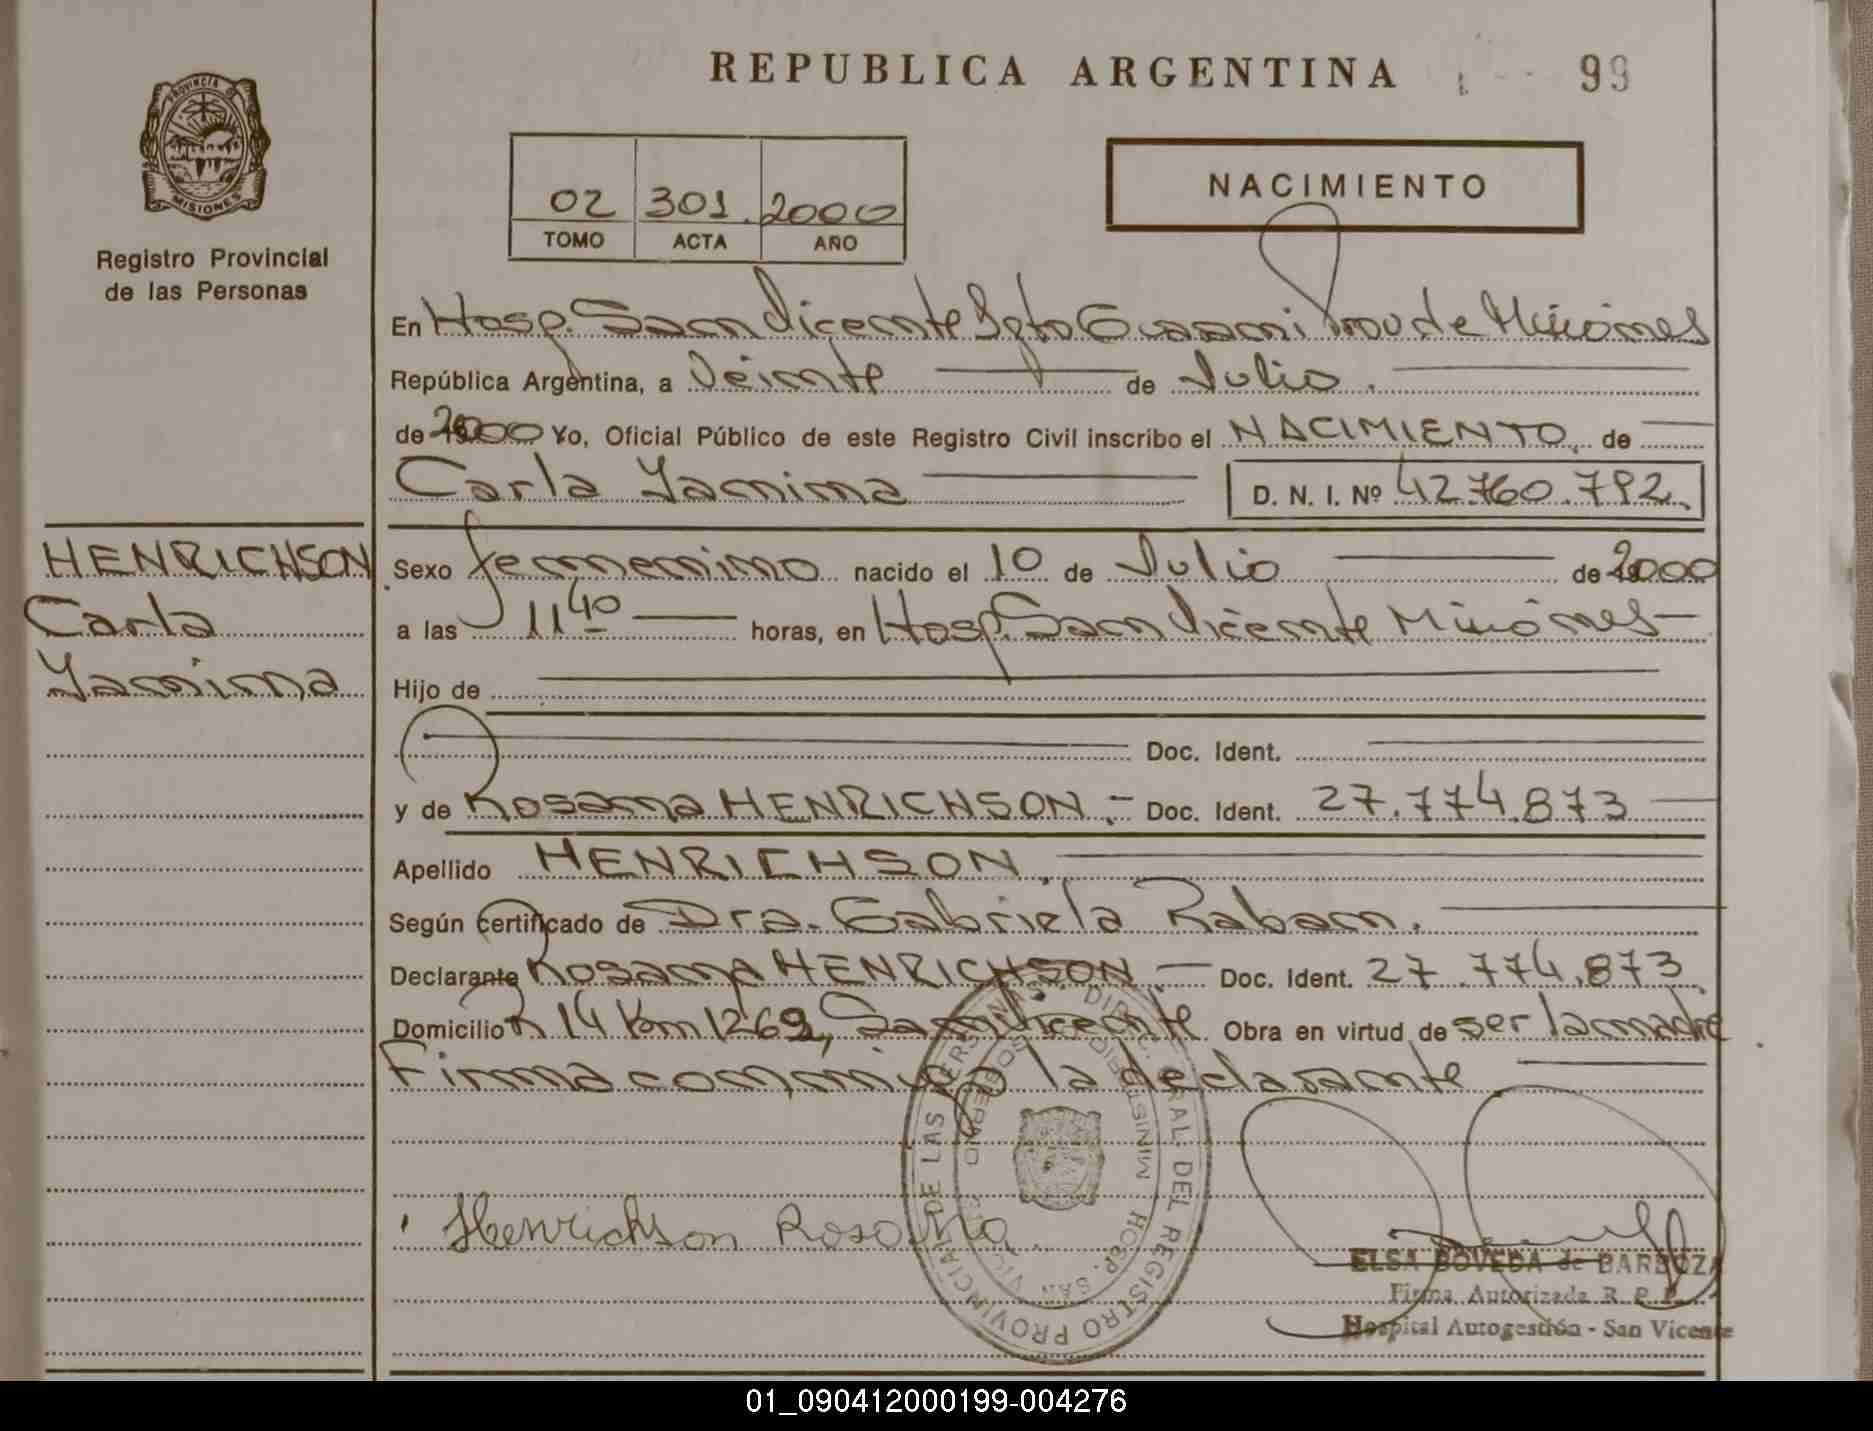 REPUBLICA ARGENTINA 99
PROVINCIA DE MISIONES
Registro Provincial
de las Personas
02 301. 2000
TOMO ACTA AÑO
NACIMIENTO
En Hosp. San Vicente Dpto Guarani Prov de Misiones
República Argentina, a Veinte de Julio.
de 2000 Yo, Oficial Público de este Registro Civil inscribo el NACIMIENTO, de
Carla Yamima D. N. I. Nº 42.760.792.
HENRICHSON
Carla
Yamima
Sexo femenino nacido el 10 de Julio de 2000
a las 11 40 horas, en Hosp. San Vicente Misiones
Hijo de
Doc. Ident.
y de Rosana HENRICHSON.- Doc. Ident. 27.774.873
Apellido HENRICHSON.
Según certificado de Dra. Gabriela Raban.
Declarante Rosana HENRICHSON.- Doc. Ident. 27.774.873
Domicilio R 14 Km 1269, San Vicente Obra en virtud de ser la madre
Firma conmigo la declarante
DIRC. GRAL. DEL REGISTRO PROVINCIAL DE LAS PERSONAS
HOSP. SAN VICENTE
Henrichson Rosana
ELSA BOVEDA de BARBOZA
Firma Autorizada R. P. P.
Hospital Autogestión - San Vicente
01_090412000199-004276